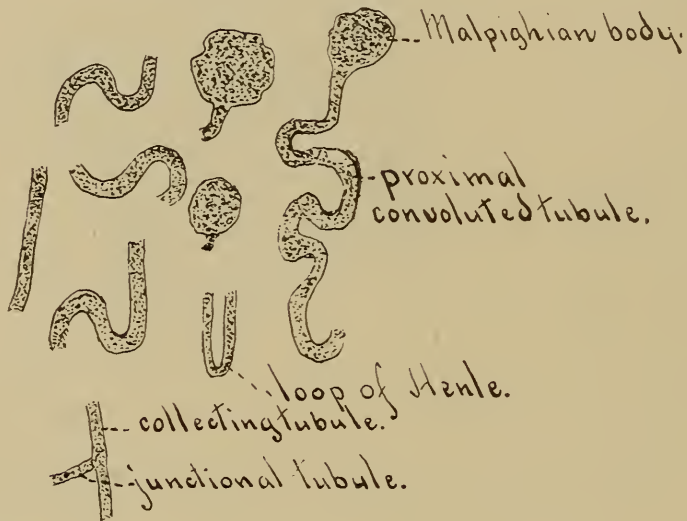 Malpighian body.
proximal
convoluted tubule.
loop of Henle.
collecting tubule.
junctional tubule.